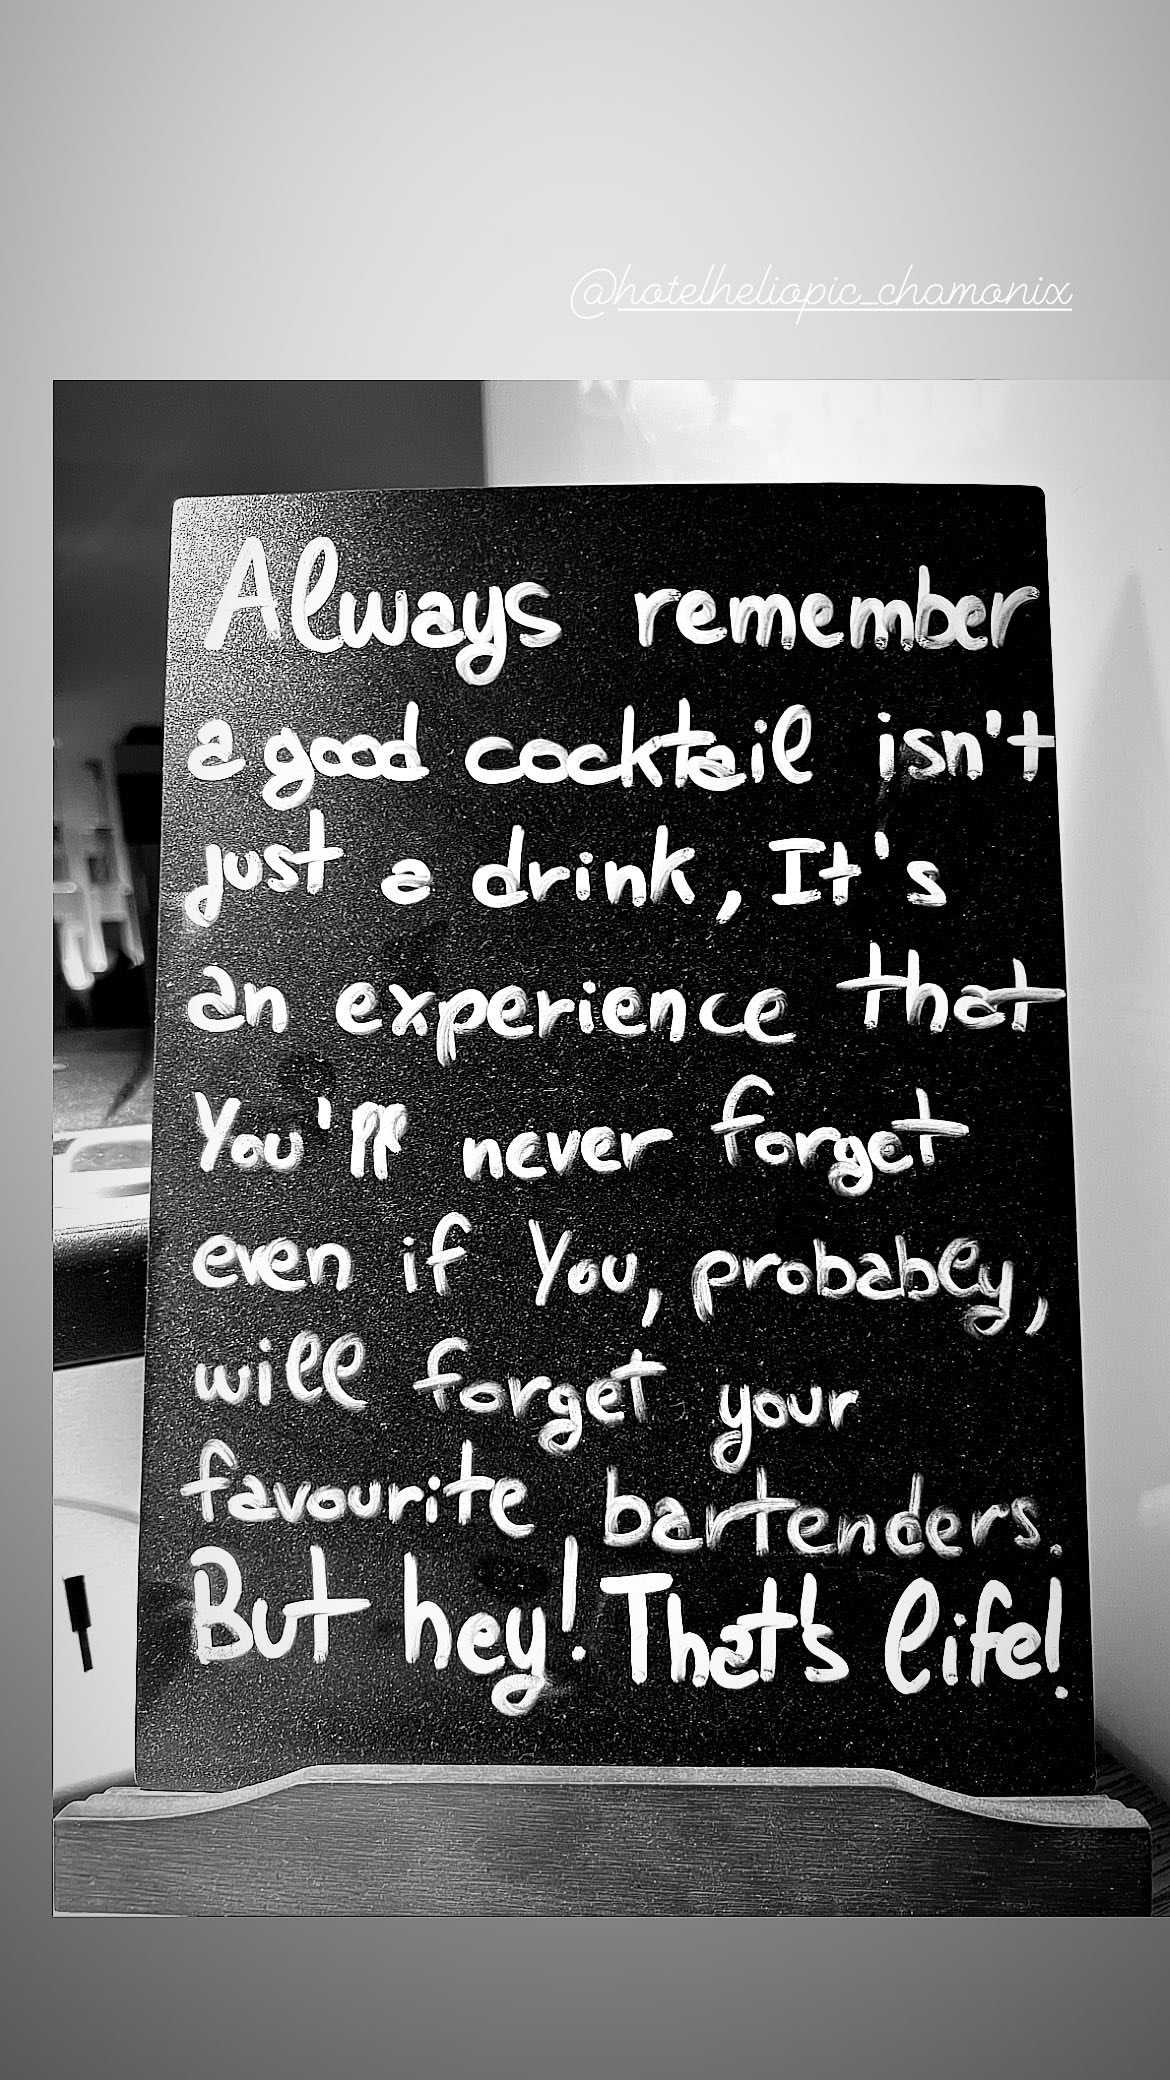 @hotelheliopic_chamonix
Always remember
a good cocktail isn't
just a drink, It's
an experience that
You'll never forget
even if You, probably,
will forget your
favourite bartenders.
But hey! That's life!